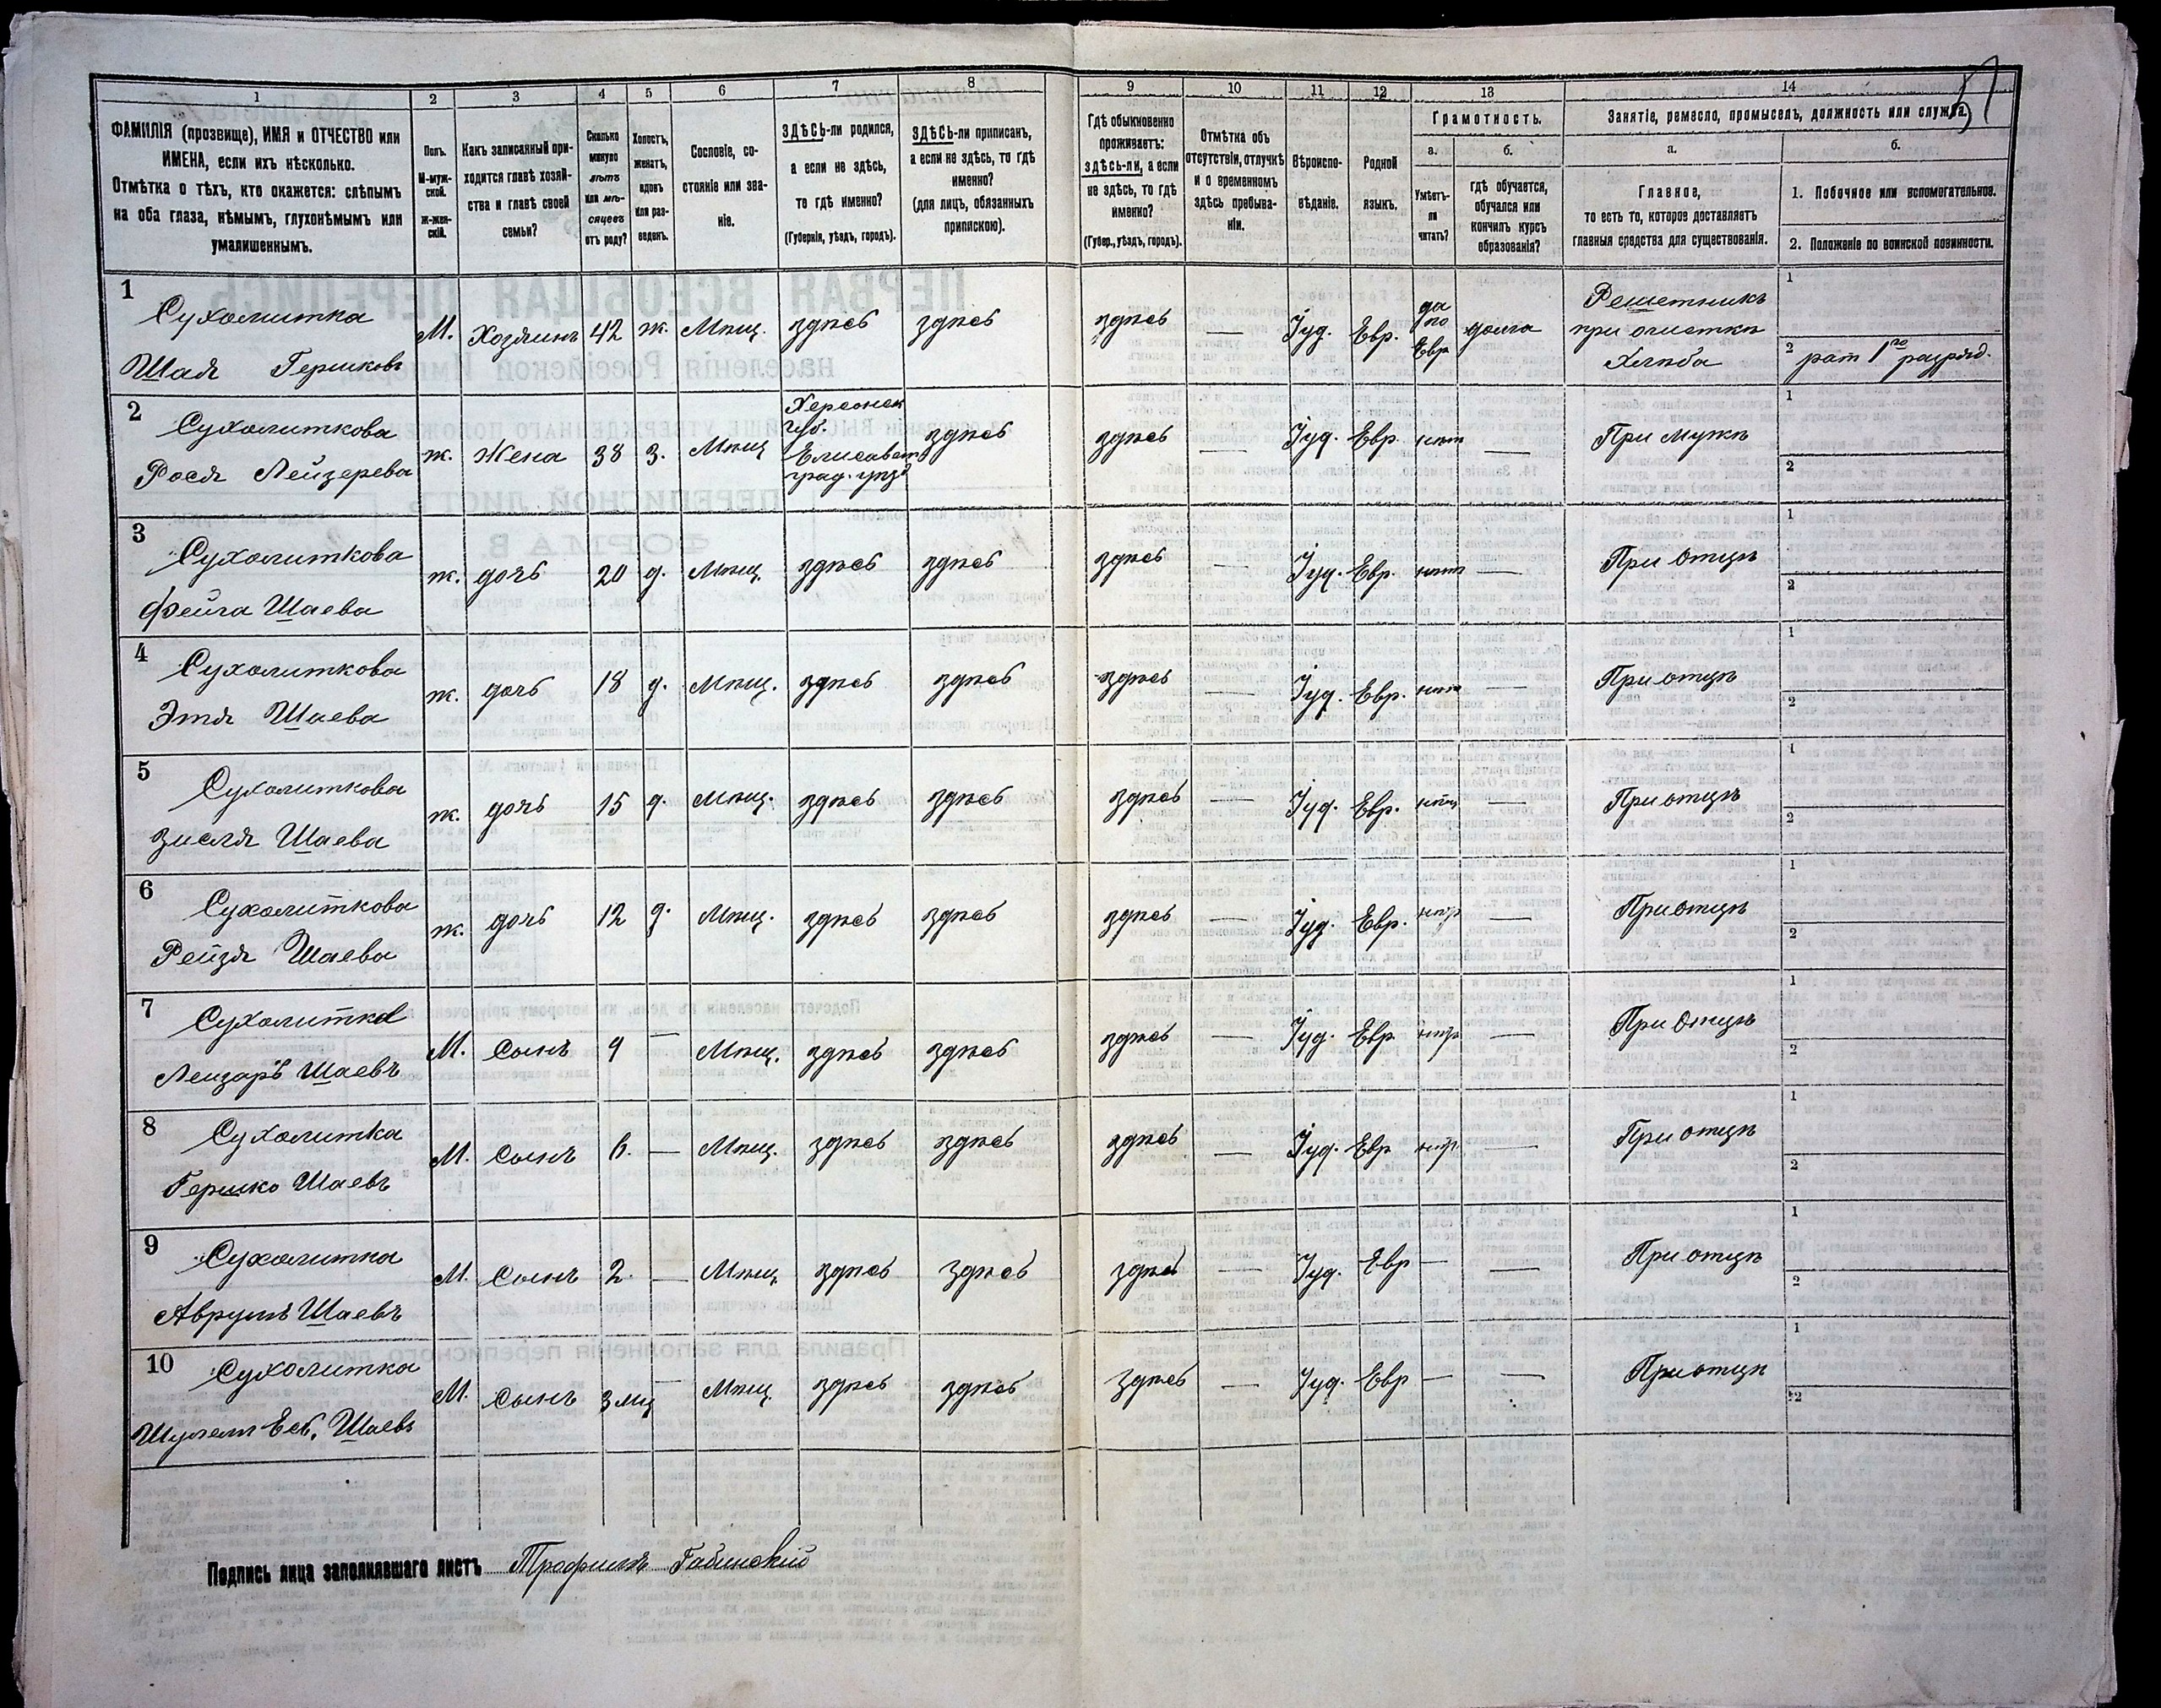 1 2 3 4 5 6 7 8 9 10 11 12 13 14
ФАМИЛІЯ (прозвище), ИМЯ и ОТЧЕСТВО или
ИМЕНА, если ихъ нѣсколько.
Отмѣтка о тѣхъ, кто окажется: слѣпымъ
на оба глаза, нѣмымъ, глухонѣмымъ или
умалишеннымъ.
Полъ.
М-муж-
ской.
ж-жен-
скій.
Какъ записанный при-
ходится главѣ хозяй-
ства и главѣ своей
семьи?
Сколько
минуло
лѣтъ
или мѣ-
сяцевъ
отъ роду?
Холостъ,
женатъ,
вдовъ
или раз-
веденъ.
Сословіе, со-
стояніе или зва-
ніе.
ЗДѢСЬ-ли родился,
а если не здѣсь,
то гдѣ именно?
(Губернія, уѣздъ, городъ).
ЗДѢСЬ-ли приписанъ,
а если не здѣсь, то гдѣ
именно?
(для лицъ, обязанныхъ
припискою).
Гдѣ обыкновенно
проживаетъ:
здѣсь-ли, а если
не здѣсь, то гдѣ
именно?
(Губер., уѣздъ, городъ).
Отмѣтка объ
отсутствіи, отлучкѣ
и о временномъ
здѣсь пребыва-
ніи.
Вѣроиспо-
вѣданіе.
Родной
языкъ.
Грамотность.
а.
Умѣетъ-
ли
читать?
б.
гдѣ обучается,
обучался или
кончилъ курсъ
образованія?
Занятіе, ремесло, промыселъ, должность или служба.
а.
Главное,
то есть то, которое доставляетъ
главныя средства для существованія.
б.
1. Побочное или вспомогательное.
2. Положеніе по воинской повинности.
1
Сухолитка
Шая Гершковъ
М. Хозяинъ 42 ж. Мѣщ. здѣсь здѣсь здѣсь — Іуд. Евр.
да
по
Евр
дома
Решетникъ
при очистки
Хлѣба
1
2 рат 1го разряд.
2
Сухолиткова
Рося Лейзерева
ж. Жена 38 з. Мѣщ
Херсонск
губ.
Елисавет
град. уѣзд
здѣсь здѣсь Іуд. Евр. нѣт — При мужѣ
1
2
3
Сухолиткова
Фейга Шаева
ж. дочь 20 д. Мѣщ. здѣсь здѣсь здѣсь — Іуд. Евр. нѣт — При Отцѣ
1
2
4
Сухолиткова
Этя Шаева
ж. дочь 18 д. Мѣщ. здѣсь здѣсь здѣсь — Іуд. Евр. нѣт — При отцѣ
1
2
5
Сухолиткова
Зисля Шаева
ж. дочь 15 д. Мѣщ. здѣсь здѣсь здѣсь — Іуд. Евр. нѣт — При отцѣ
1
2
6
Сухолиткова
Рейзя Шаева
ж. дочь 12 д. Мѣщ. здѣсь здѣсь здѣсь — Іуд. Евр. нѣт — При отцѣ
1
2
7
Сухолитка
Лейзоръ Шаевъ
М. Сынъ 9 — Мѣщ. здѣсь здѣсь здѣсь — Іуд. Евр. нѣт — При Отцѣ
1
2
8
Сухолитка
Гершко Шаевъ
М. Сынъ 6. — Мѣщ. здѣсь здѣсь здѣсь — Іуд. Евр нѣт — При отцѣ
1
2
9
Сухолитка
Аврумъ Шаевъ
М. Сынъ 2. — Мѣщ здѣсь здѣсь здѣсь — Іуд. Евр — — При отцѣ
1
2
10
Сухолитка
Шулем Шаевъ
М. Сынъ 3 мц — Мѣщ. здѣсь здѣсь здѣсь — Іуд. Евр — — При отцѣ
1
2
Подпись лица заполнявшаго листъ Трофимъ Габинскій